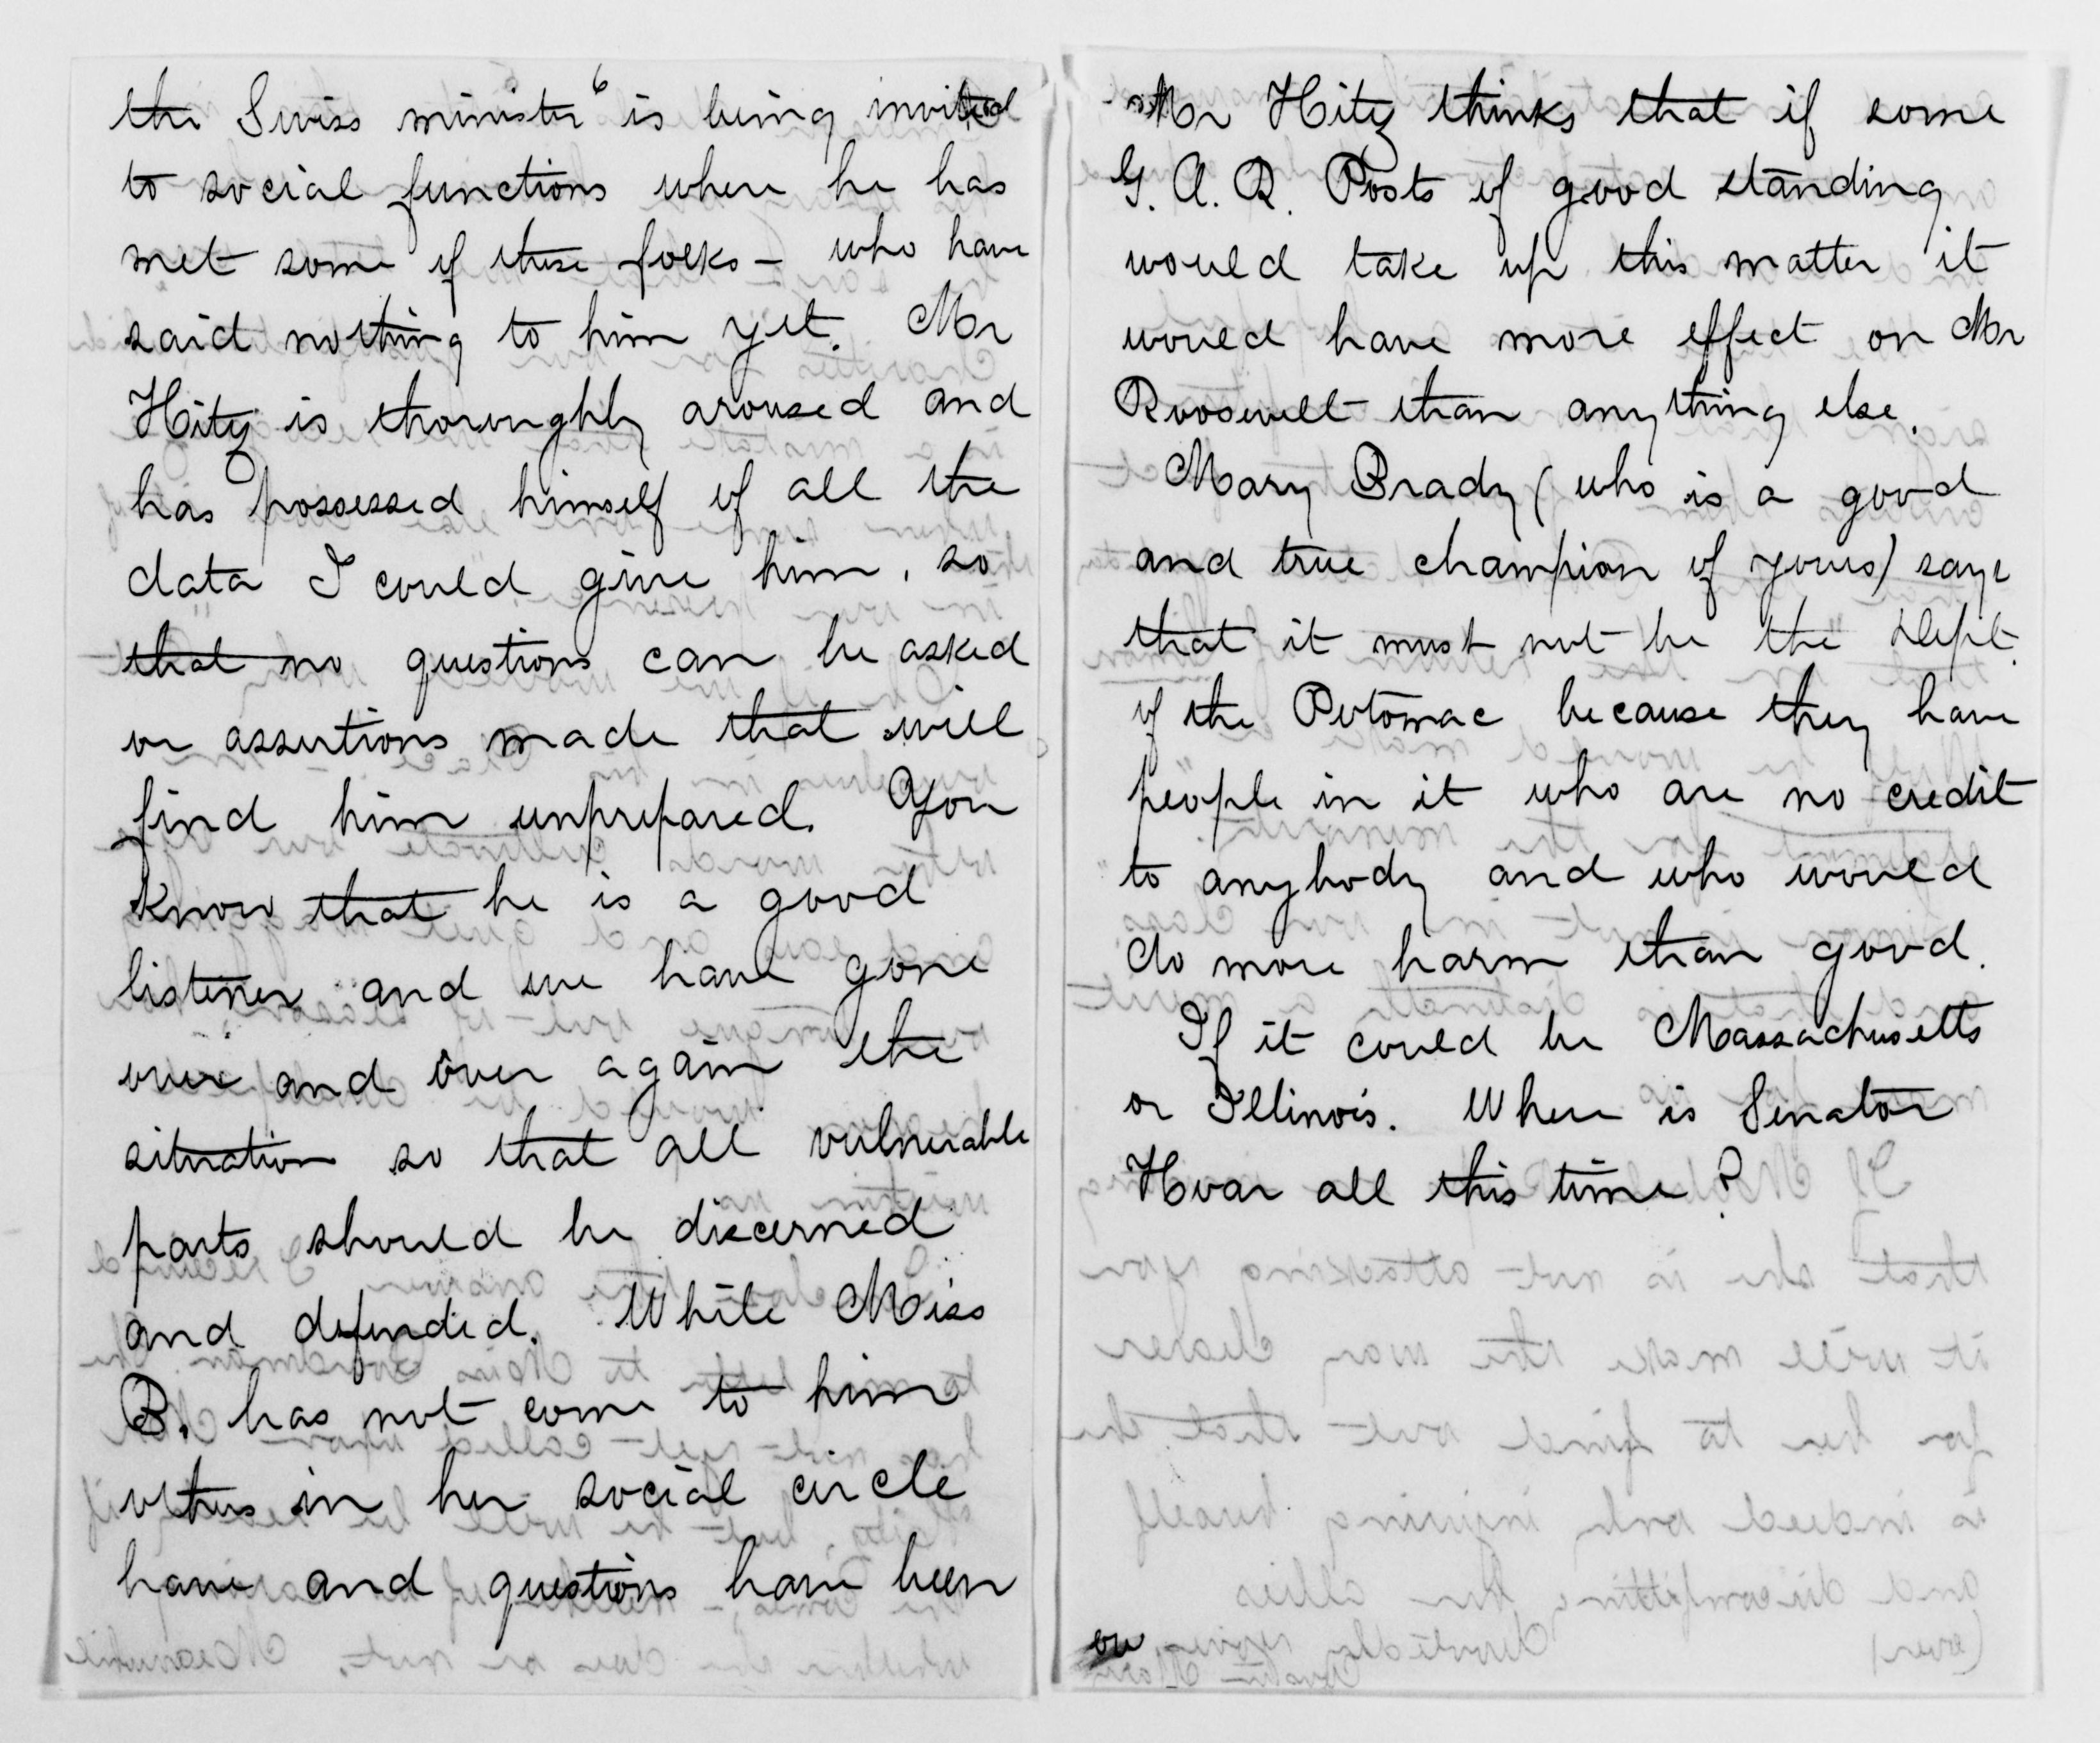 6
the Swiss minister is being invited
to social functions where he has
met some of these folks – who have
said nothing to him yet. Mr
Hitz is thoroughly aroused and
has possessed himself of all the
data I could give him, so
that no questions can be asked
or assertions made that will
find him unprepared. You
know that he is a good
listener and we have gone
over and over again the
situation so that all vulnerable
parts should be discerned
and defended. While Miss
B. has not come to him
others in her social circle
have and questions have been
Mr Hitz thinks that if some
G. A. R. Posts of good standing
would take up this matter it
would have more effect on Mr
Roosevelt than anything else.
Mary Brady (who is a good
and true champion of yours) says
that it must not be the Dept.
of the Potomac because they have
people in it who are no credit
to anybody and who would
do more harm than good.
If it could be Massachusetts
or Illinois. Where is Senator
Hoar all this time?